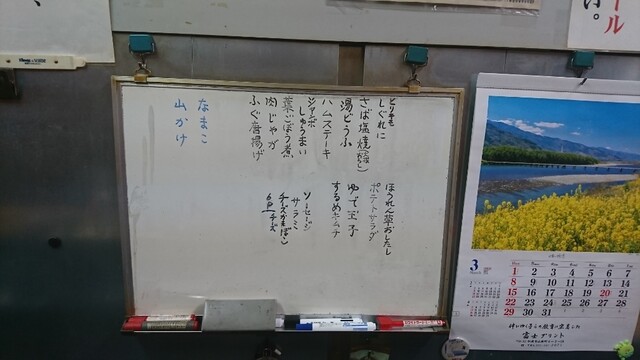 とりもも
しぐれに
さば塩焼
湯どうふ
ハムステーキ
ジャンボ
しゅうまい
葉ごぼう煮
肉じゃが
ふぐ唐揚げ
なまこ
山かけ
ほうれん草おひたし
ポテトサラダ
ゆで玉子
するめキムチ
ソーセージ
サラミ
チーズかまぼこ
6Pチーズ
3
1 2 3 4 5 6 7
8 9 10 11 12 13 14
15 16 17 18 19 20 21
22 23 24 25 26 27 28
29 30 31
富士プリント
ール
け。